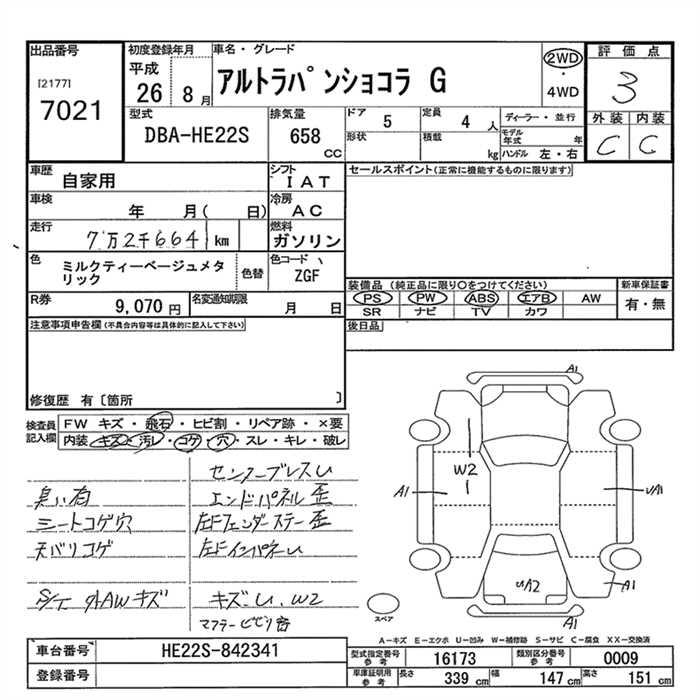 出品番号
[2177]
7021
初度登録年月
平成
26 8月
車名・グレード
アルトラパンショコラ G
2WD
・
4WD
評価点
3
外装 内装
C C
型式
DBA-HE22S
排気量
658
CC
ドア 5
定員 4 人
形状
積載 kg
ディーラー・並行
モデル年式 年
ハンドル 左・右
車歴
自家用
シフト
IAT
セールスポイント(正常に機能するものに限ります)
車検
年 月( 日)
冷房
AC
走行
7万2千664 km
燃料
ガソリン
色
ミルクティーベージュメタリック
色替
色コード
ZGF
装備品(純正品に限り〇をつけてください)
PS PW ABS エアB AW
SR ナビ TV カワ
新車保証書
有・無
R券
9,070 円
名変通知期限
月 日
後日品
注意事項申告欄(不具合内容等は具体的に記入して下さい)
修復歴 有〔箇所 〕
検査員
記入欄
FW キズ・飛石・ヒビ割・リペア跡・×要
内装 キズ・汚レ・コゲ・穴・スレ・キレ・破レ
センターブレスU
臭い有
エンドパネル歪
シートコゲ穴
左Fフェンダーステー歪
天バリコゲ
左FインパネU
S/T 外AWキズ
キズ・U、W2
マフラービビり音
A1
W2
A1
UA1
UA2
A1
A1
スペア
A-キズ E-エクボ U-凹み W-補修跡 S-サビ C-腐食 XX-交換済
車台番号
HE22S-842341
登録番号
型式指定番号
参考
16173
類別区分番号
参考
0009
車庫証明用
参考
長さ 339 cm
幅 147 cm
高さ 151 cm